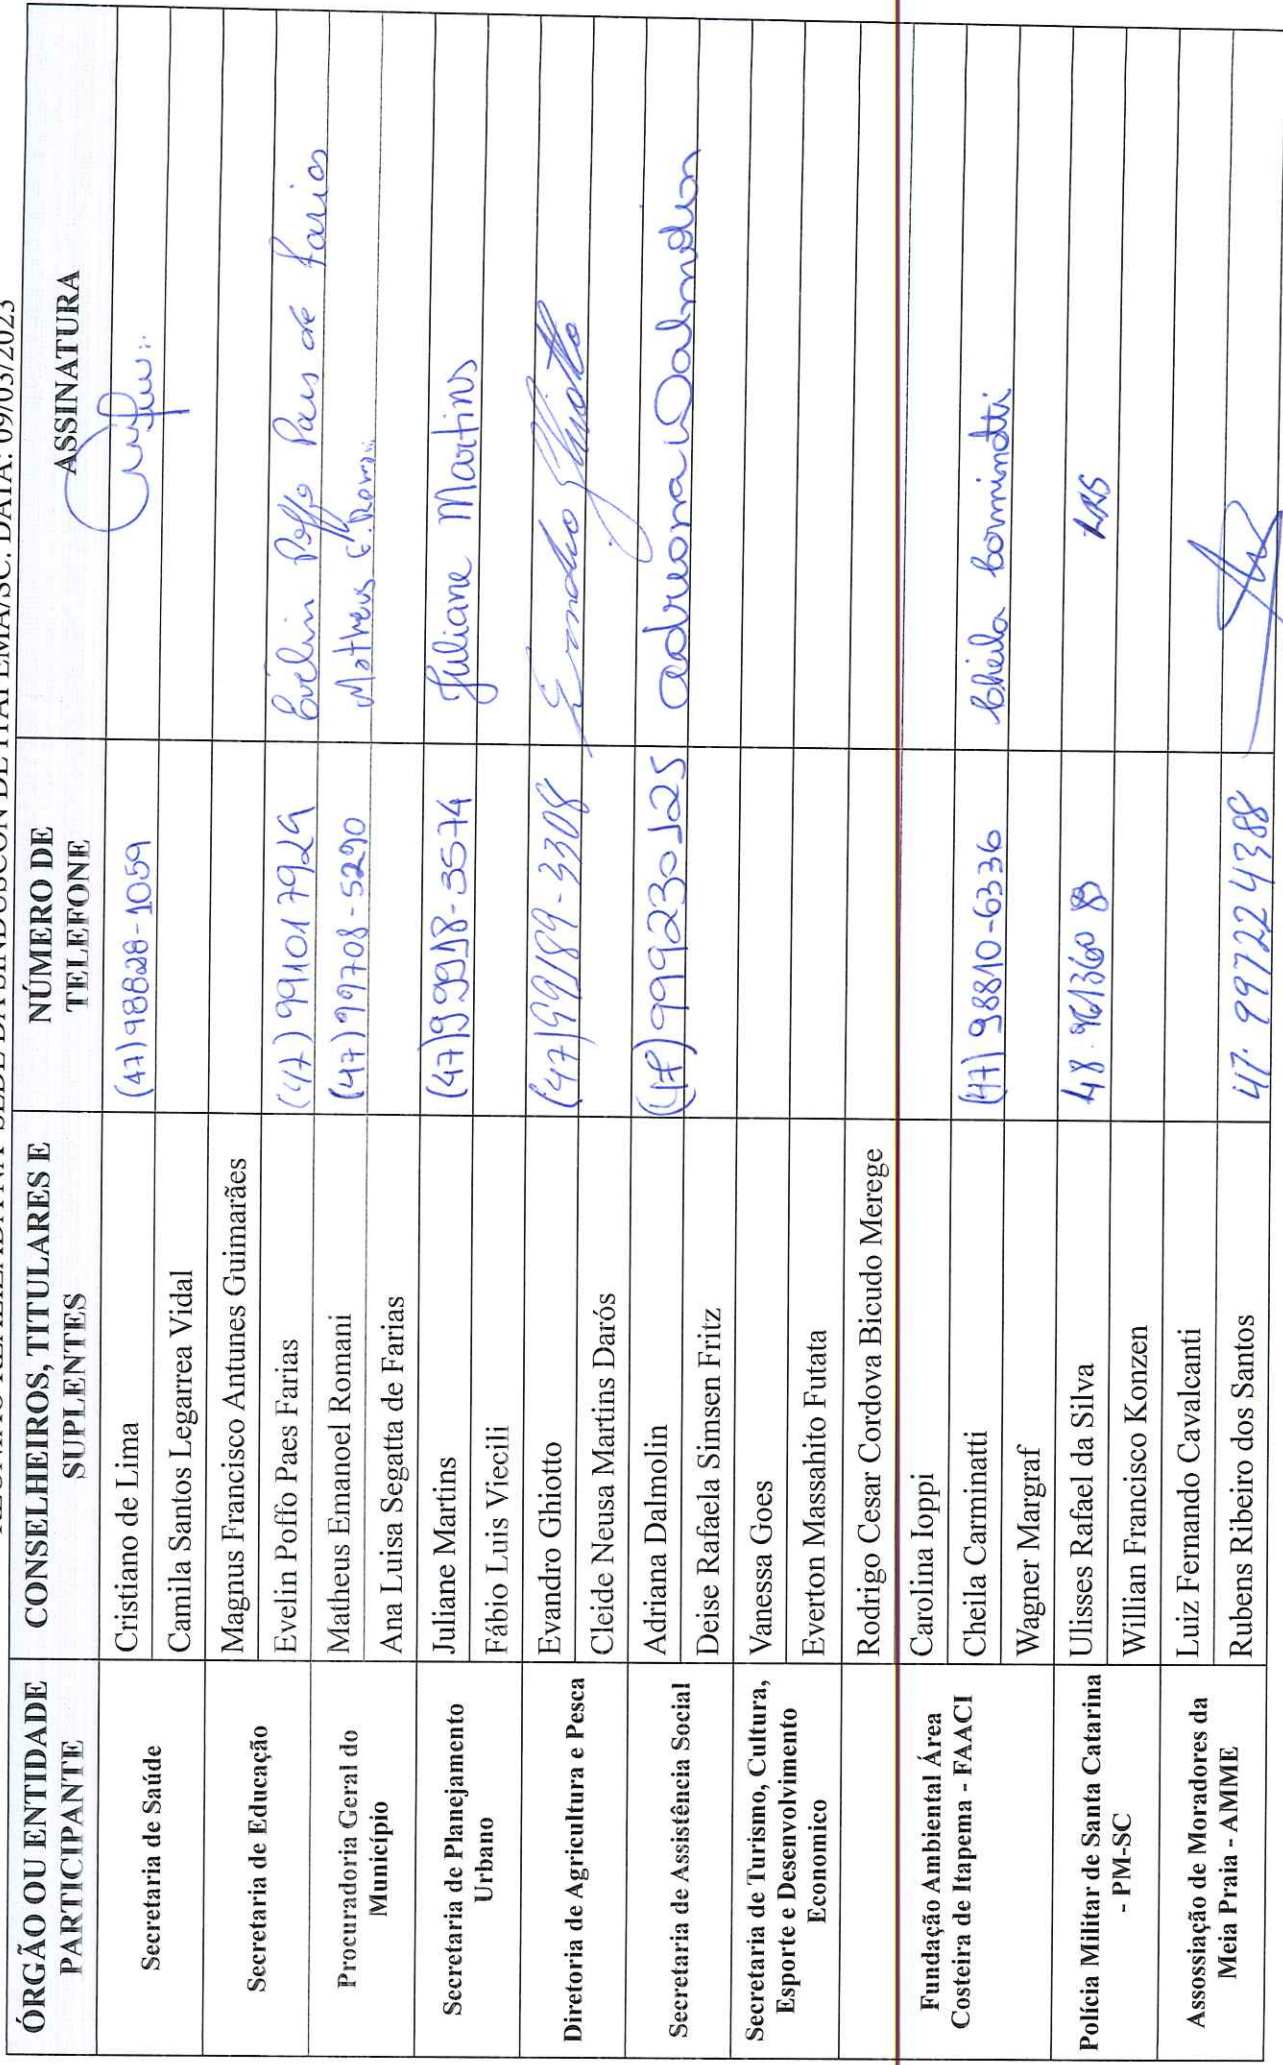 SEDE DA SINDUSCON DE ITAPEMA/SC. DATA: 09/03/2023
ÓRGÃO OU ENTIDADE PARTICIPANTE
CONSELHEIROS, TITULARES E SUPLENTES
NÚMERO DE TELEFONE
ASSINATURA
Secretaria de Saúde
Cristiano de Lima
(47) 98828-1059
Camila Santos Legarrea Vidal
Secretaria de Educação
Magnus Francisco Antunes Guimarães
Evelin Poffo Paes Farias
(47) 991017929
Evelin Poffo Paes de Farias
Procuradoria Geral do Município
Matheus Emanoel Romani
(47) 99708-5290
Matheus E. Romani
Ana Luisa Segatta de Farias
Secretaria de Planejamento Urbano
Juliane Martins
(47) 99918-3574
Juliane Martins
Fábio Luis Viecili
Diretoria de Agricultura e Pesca
Evandro Ghiotto
(47) 99189-3308
Evandro Ghiotto
Cleide Neusa Martins Darós
Secretaria de Assistência Social
Adriana Dalmolin
(47) 999230125
Adriana Dalmolin
Deise Rafaela Simsen Fritz
Secretaria de Turismo, Cultura, Esporte e Desenvolvimento Economico
Vanessa Goes
Everton Massahito Futata
Rodrigo Cesar Cordova Bicudo Merege
Fundação Ambiental Área Costeira de Itapema - FAACI
Carolina Ioppi
Cheila Carminatti
(47) 98810-6336
Cheila Carminatti
Wagner Margraf
Polícia Militar de Santa Catarina - PM-SC
Ulisses Rafael da Silva
48. 961360 8
Willian Francisco Konzen
Assossiação de Moradores da Meia Praia - AMME
Luiz Fernando Cavalcanti
Rubens Ribeiro dos Santos
47. 99722 4388